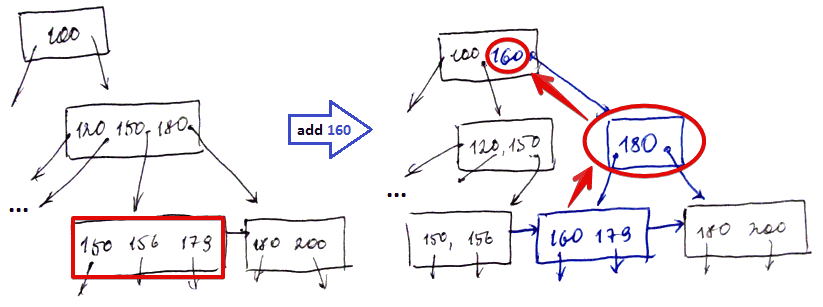 100
120 150 180
...
150 156 179
180 200
add 160
100 160
120, 150
180
...
150, 156
160 179
180 200